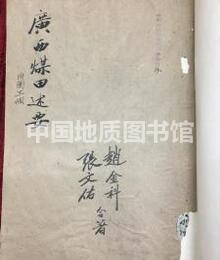 廣西煤田述要
附圖五幅
趙金科
張文佑
合著
中国地质图书馆